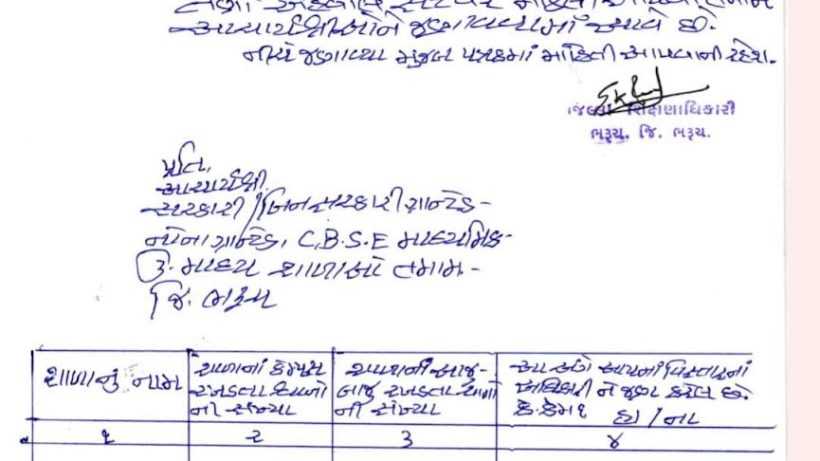 આચાર્યશ્રીઓને જણાવવામાં આવે છે.
નીચે જણાવ્યા મુજબ પત્રકમાં માહિતી આપવાની રહેશે.
જિલ્લા શિક્ષણાધિકારી
ભરૂચ. જિ. ભરૂચ.
પ્રતિ,
આચાર્યશ્રી,
સરકારી/બિનસરકારી ગ્રાન્ટેડ-
નોનગ્રાન્ટેડ, C.B.S.E માધ્યમિક-
ઉ.માધ્ય શાળાઓ તમામ-
જિ. ભરૂચ
શાળાનું નામ
શાળાનાં કેમ્પસ
રખડતા શ્વાનો
ની સંખ્યા
શાળાની આજુ-
બાજુ રખડતા શ્વાનો
ની સંખ્યા
આ અંગે આપનાં વિસ્તારનાં
અધિકારી ને જાણ કરેલ છે.
કે કેમ?
હા/ના
૧ ૨ ૩ ૪